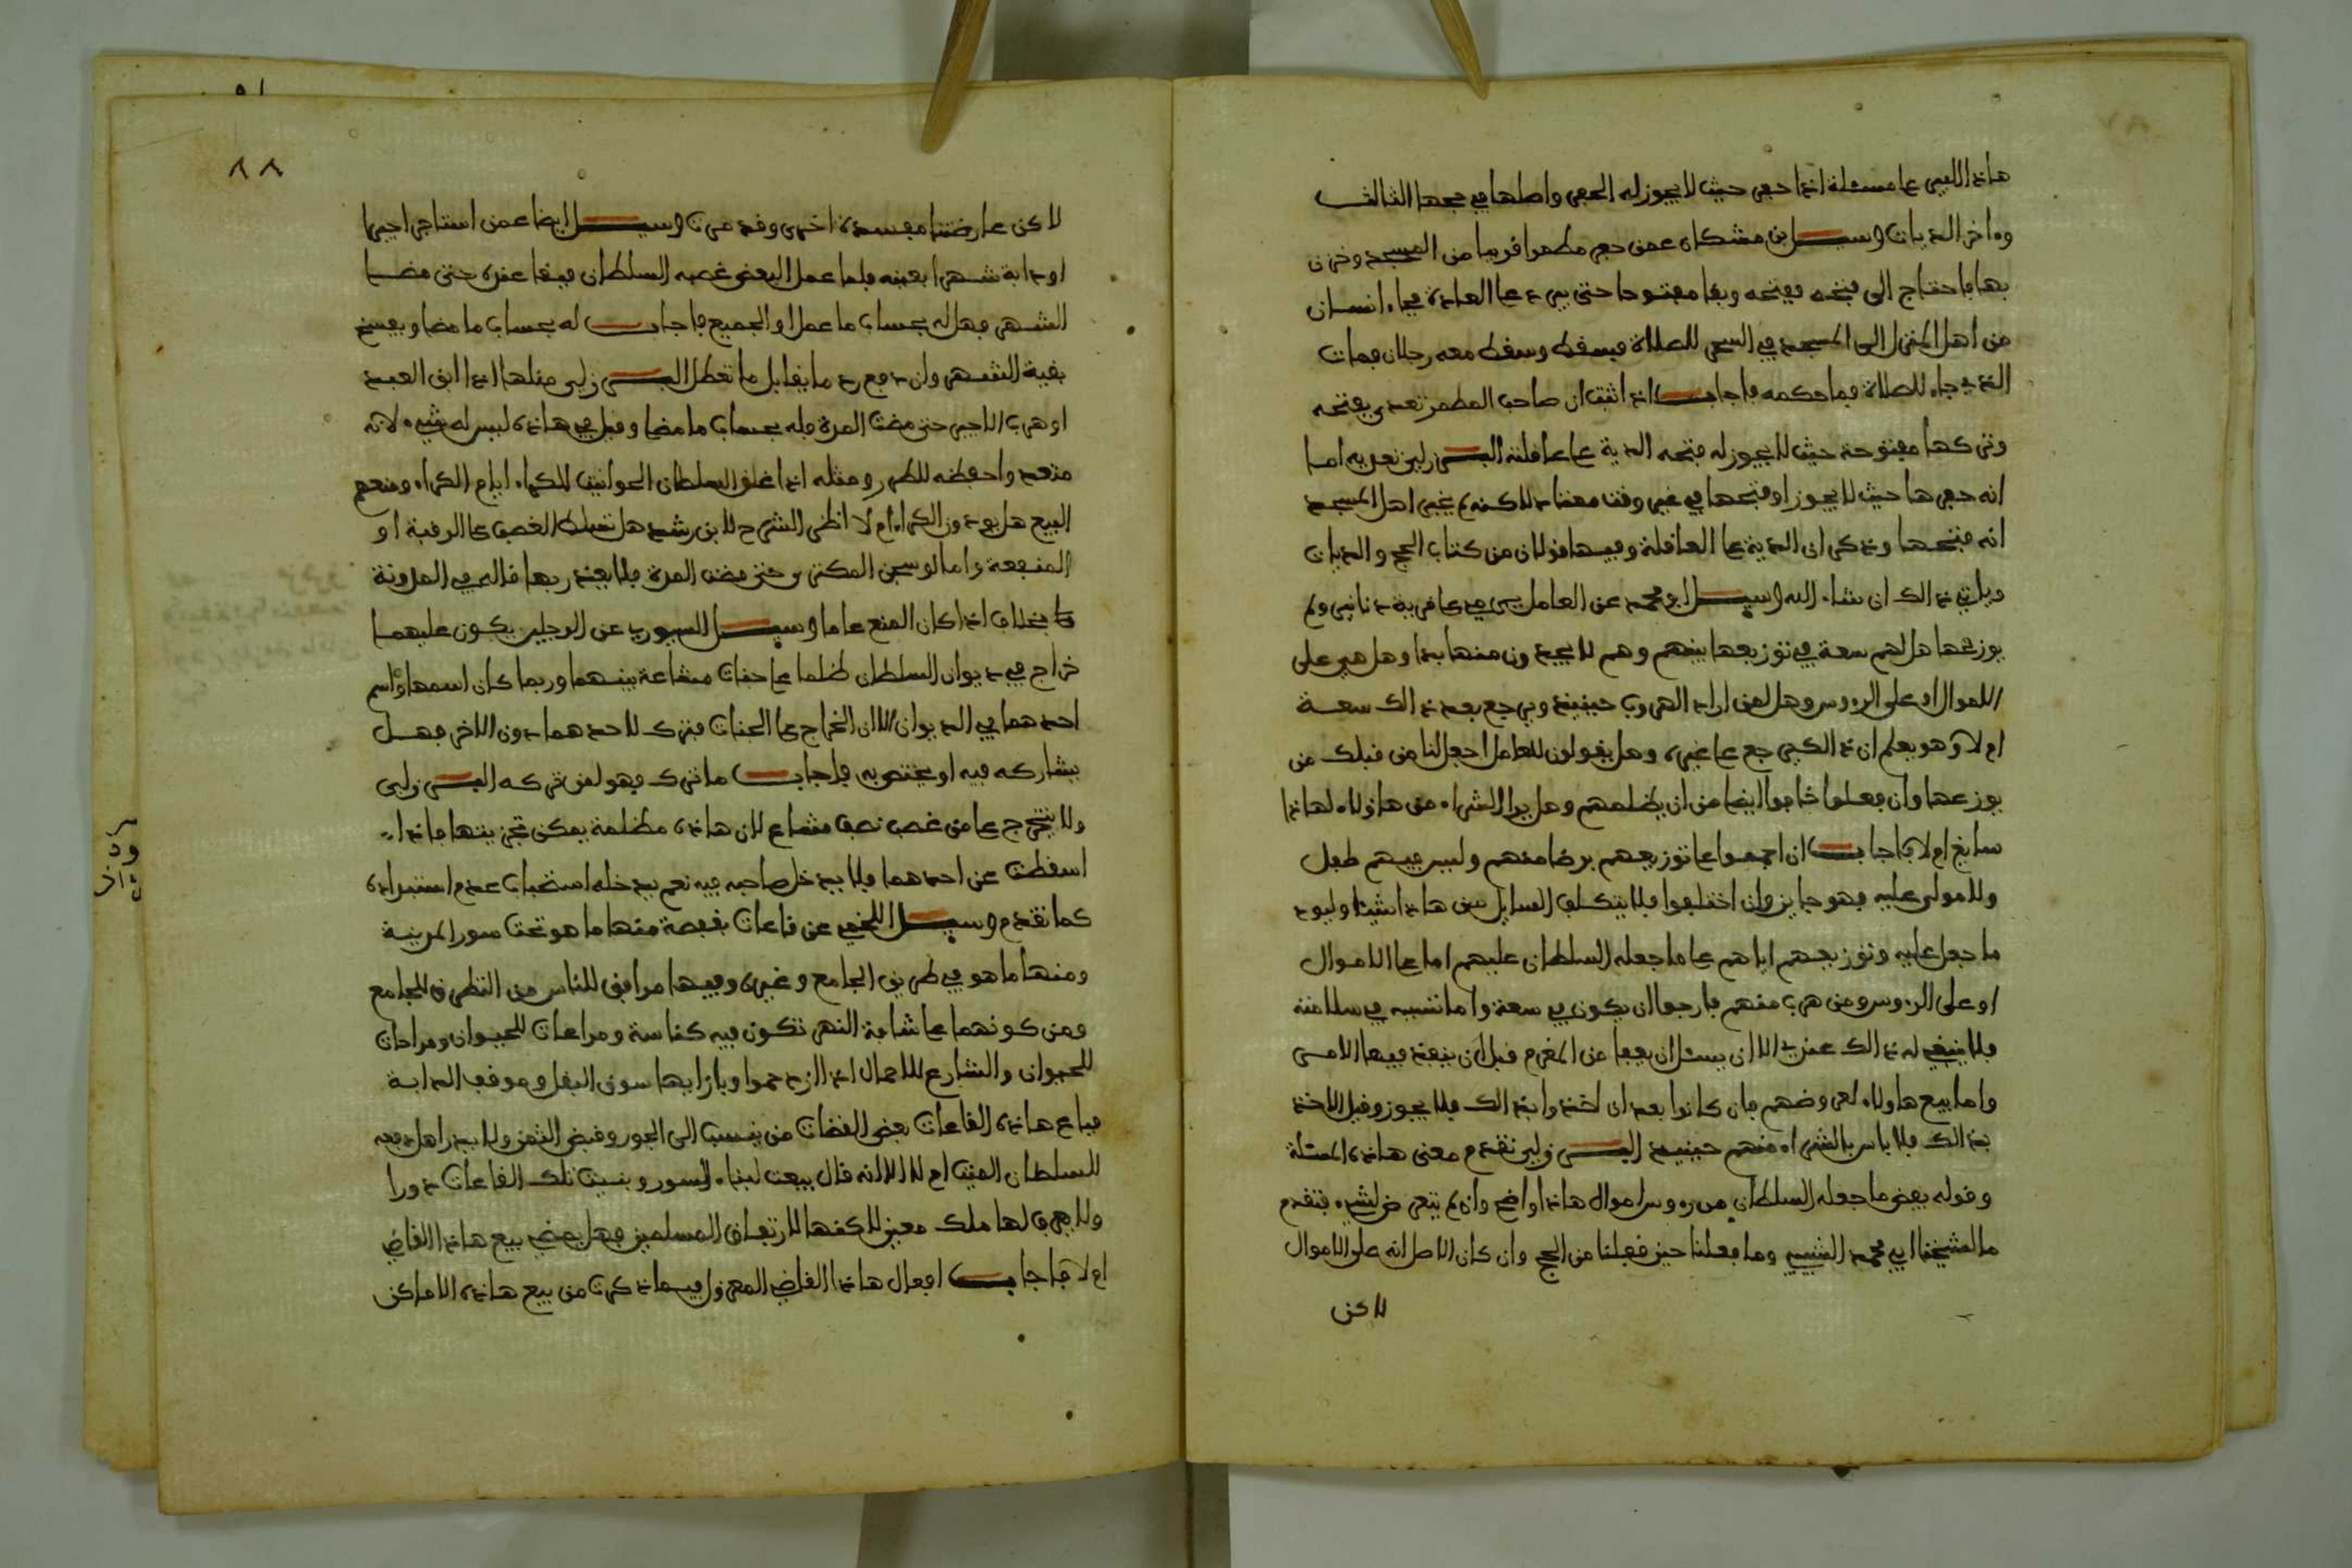 هاذا اللبس على مسئلة اذا حفر حيث لا يجوز له الحفر واصلها في حجها الثالث
وءاخر الديات وسيل ابن مشكان عمن حفر مطمرا قريبا من المسجد وخزن
بها فاحتاج الى فتحه ففتحه وبقا مفتوحا حتى يبرد على العادة فجاء انسان
من اهل المنزل الى المسجد في السحر للصلاة فسقط وسقط معه رجلان فمات
الذي جاء للصلاة فما حكمه فاجاب اذا اثبت ان صاحب المطمر تعدى بفتحه
وتركها مفتوحة حيث لا يجوز له فتحه الدية على عاقلته البـرزلي تعديه اما
انه حفرها حيث لا يجوز او فتحها في غير وقت معتاد لاكنه لم يخبر اهل المسجد
انه فتحها وذكر ان الدية على العاقلة وفيها قولان من كتاب الحج والديات
وياتي ذالك ان شاء الله وسيل ابو محمد عن العامل يرمي على قرية دنانير ولم
يوزعها هل لهم سعة في توزيعها بينهم وهم لا يجدون منها بدا وهل هي على
الاموال او على الرءوس وهل لمن اراد الهروب حينيذ ويرجع بعد ذالك سعة
ام لا وهو يعلم ان ذالك يرجع على غيره وهل يقولون للعامل اجعل لنا من قبلك من
يوزعها وان فعلوا خافوا ايضا من ان يظلمهم وهل يرا الشراء من هاؤلاء لهاذا
سايغ ام لا فاجاب ان اجمعوا على توزيعهم برضا منهم وليس فيهم طفل
ولا مولى عليه فهو جايز وان اختلفوا فلا يتكلف السايل من هاذا شيئا وليود
ما جعل عليه وتوزيعهم اياهم على ما جعله السلطان عليهم اما على الاموال
او على الرءوس ومن هرب منهم فارجوا ان يكون في سعة واما تسببه في سلامته
فلا ينبغي له ذالك عندي الا ان يسئل ان يعفا من المغرم قبل ان ينفذ فيها الامر
واما بيع هاولاء لعروضهم فان كانوا بعد ان اخذوا بذالك فلا يجوز وقبل الاخذ
بذالك فلا باس بالشراء منهم حينيذ البـرزلي تقدم معنى هاذه المسئلة
وقوله بعض ما جعله السلطان من رءوس اموال هاذا واضح وان لم يتعرض لشيء فتقدم
ما لشيخنا ابي محمد الشبيبي وما فعلنا حين قفلنا من الحج وان كان الاصل انه على الاموال
لاكن
٨٨
لاكن عارضتنا مفسدة اخرى وقد مرت وسيل ايضا عمن استاجر اجيرا
او دابة شهرا بعينه فلما عمل البعض غصبه السلطان فبقا عنده حتى مضا
الشهر فهل له بحساب ما عمل او الجميع فاجاب له بحساب ما مضا ويفسخ
بقية الشهر وان دفع رد ما يقابل ما تعطل البـرزلي مثلها اذا ابق العبد
او هرب الاجير حتى مضت المدة فله بحساب ما مضا وقيل في هاذه ليس له شيء لانه
متعد واحفظه للطرر ومثله اذا غلق السلطان الحوانيت للكراء ايام الكراء ومنعهم
البيع هل يودون الكراء ام لا اظنى الشرح لابن رشد هل تسلط الغصب على الرقبة او
المنفعة واما لو سجن المكتري حتى مضت المدة فلا يعذر بها قاله في المدونة
بخلاف اذا كان المنع عاما وسيل السيوري عن الرجلين يكون عليهما
خراج في ديوان السلطان ظلما على جنات مشاعة بينهما وربما كان اسمهما او اسم
احدهما في الديوان الا ان الخراج على الجنات فترك لاحدهما دون الاخر فهل
يشاركه فيه او يختص به فاجاب ما ترك فهو لمن تركه البـرزلي
ولا يتخرج على من غصب نصف مشاع لان هاذه مظلمة يمكن تجزيتها فاذا
اسقطت عن احدهما فلا يدخل صاحبه فيه نعم يدخله استحباب عدم استبداده
كما تقدم وسيل اللخمي عن قاعات بقفصة منها ما هو تحت سور المدينة
ومنها ما هو في طريق الجامع وغيره وفيها مرافق للناس من التطرق للجامع
ومن كونهما على شافة النهر تكون فيه كناسة ومراعات للحيوان ومراحات
للحيوان والشارع للاحمال اذا ازدحموا وبازايها سوق البقل وموقف الدابة
فباع هاذه القاعات بعض القضات من ينسب الى الجور وقبض الثمن ولا يدرا هل دفعه
للسلطان الميت ام لا الا انه قال بيعت لبناء السور وبنيت تلك القاعات دورا
ولا يعرف لها ملك معين لاكنها لارتفاق المسلمين فهل يمضي بيع هاذا القاضي
ام لا فاجاب افعال هاذا القاضي المعزول فيما ذكرت من بيع هاذه الاماكن